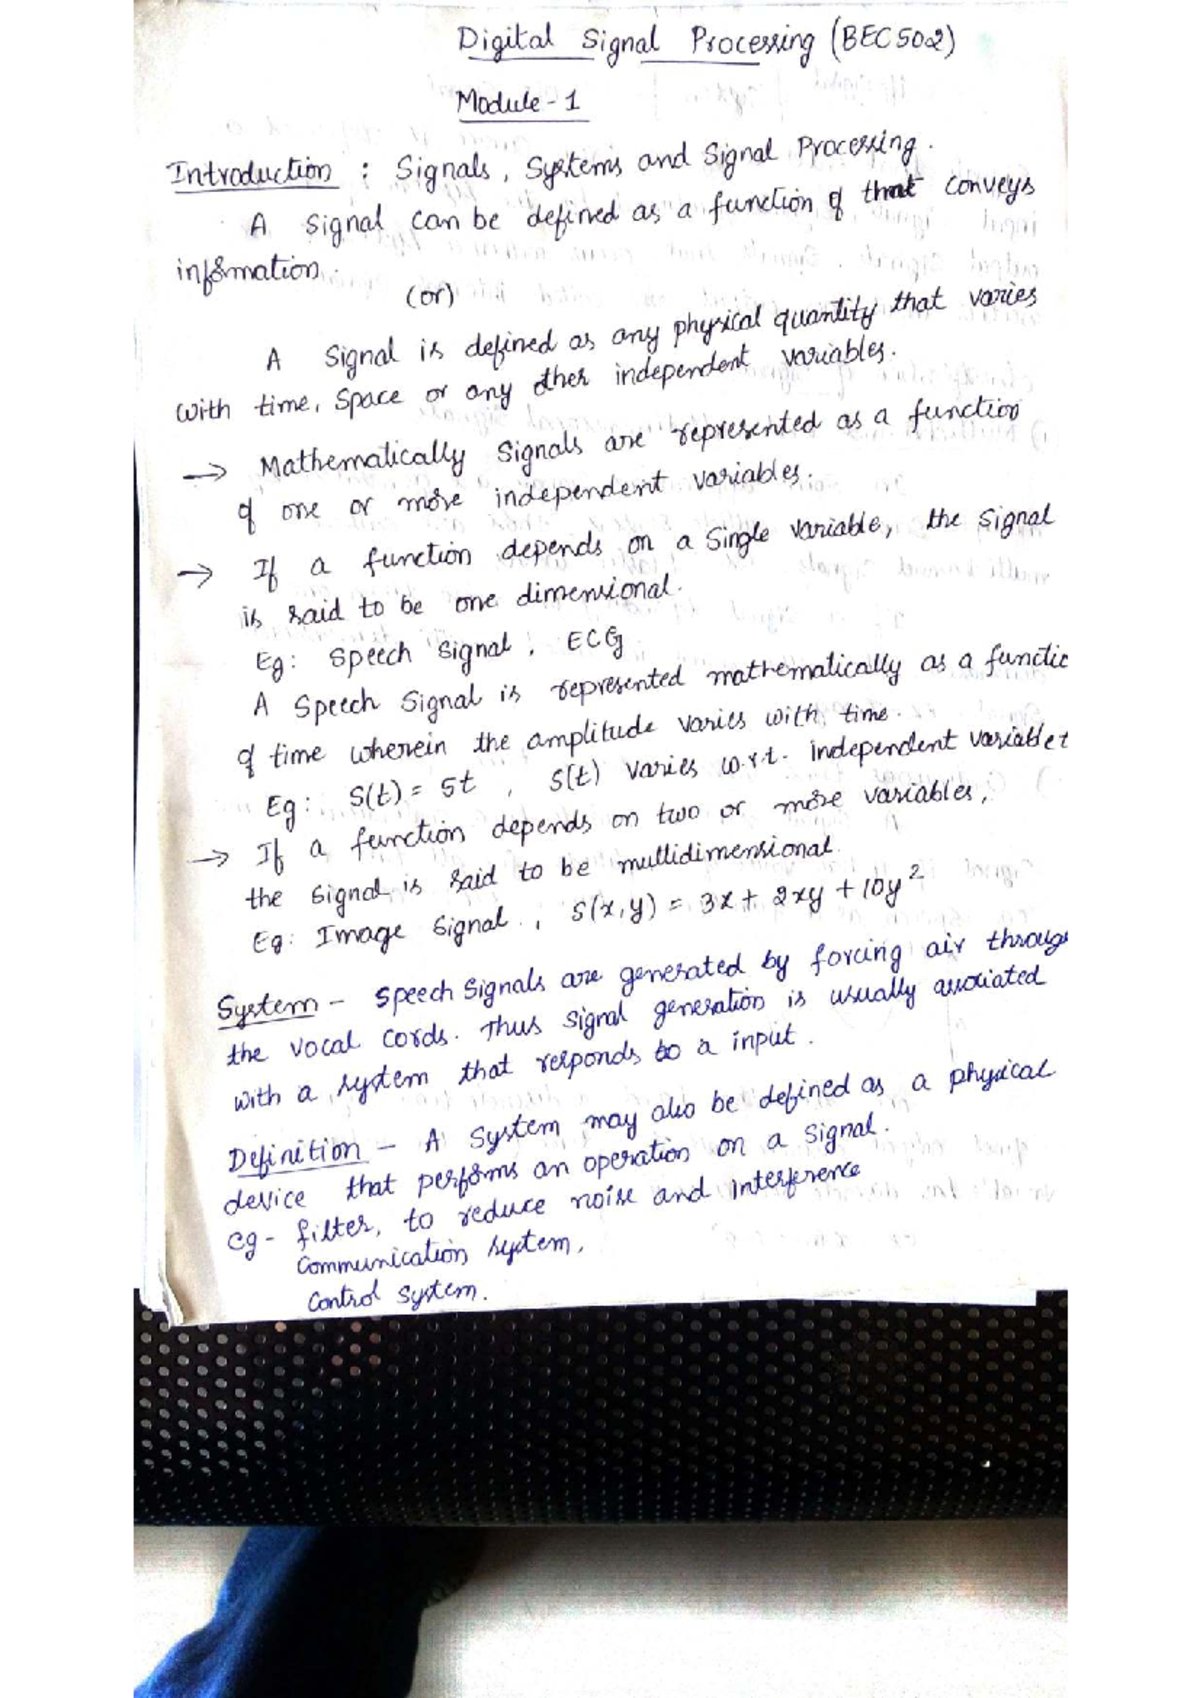 Digital Signal Processing (BEC502)
Module - 1
Introduction : Signals, Systems and Signal Processing.
A Signal can be defined as a function of that conveys
information.
(or)
A Signal is defined as any physical quantity that varies
with time, Space or any other independent variables.
→ Mathematically Signals are represented as a function
of one or more independent variables.
→ If a function depends on a Single variable, the Signal
is said to be one dimensional.
Eg: Speech Signal, ECG
A Speech Signal is represented mathematically as a functio
of time wherein the amplitude varies with time.
Eg: S(t) = 5t , S(t) varies w.r.t. independent variable t
→ If a function depends on two or more variables,
the Signal is said to be multidimensional.
Eg: Image Signal. , S(x,y) = 3x + 2xy + 10y²
System - Speech Signals are generated by forcing air throug
the vocal cords. Thus signal generation is usually associated
with a system that responds to a input.
Definition - A System may also be defined as a physical
device that performs an operation on a Signal.
eg - filter, to reduce noise and interference
Communication system,
Control System.